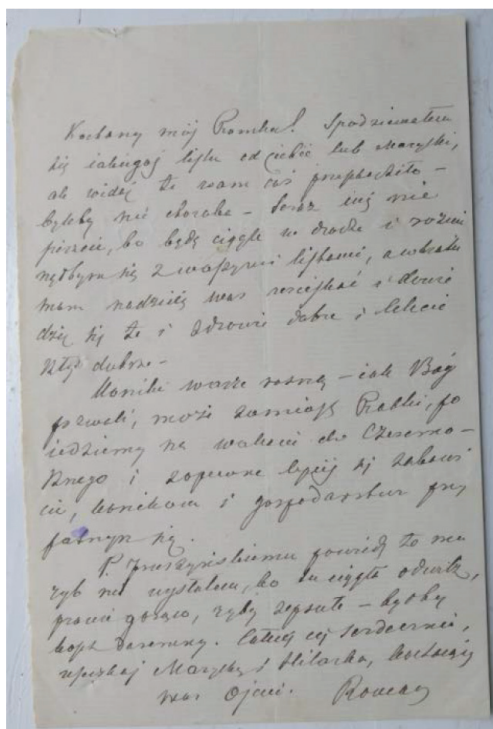 Kochany mój Romku! Spodziewałem
się jakiegoś listu od ciebie lub Maryśki,
ale widać że wam coś przeszkodziło –
byleby nie choroba – teraz już nie
piszcie, bo będę ciągle w drodze i
się z waszymi listami, a wkrótce
mam nadzieję was uściskać i
się że i zdrowie dobre i
dobrze –
Koniki wasze rosną – jak Bóg
pozwoli, może zamiast Rabki, po
jedziemy na wakacje do
i zapewne lepiej się zabawi
cie, konikom i gospodarstwu przy
się.
P. powiedz że mu
ryb nie wysłałem, bo tu ciągle odwilż,
prawie gorąco, ryby zepsute – byłby
koszt daremny. Całuję cię serdecznie,
uściskaj Maryśkę i Hilarka, kochający
was Ojciec. Roman